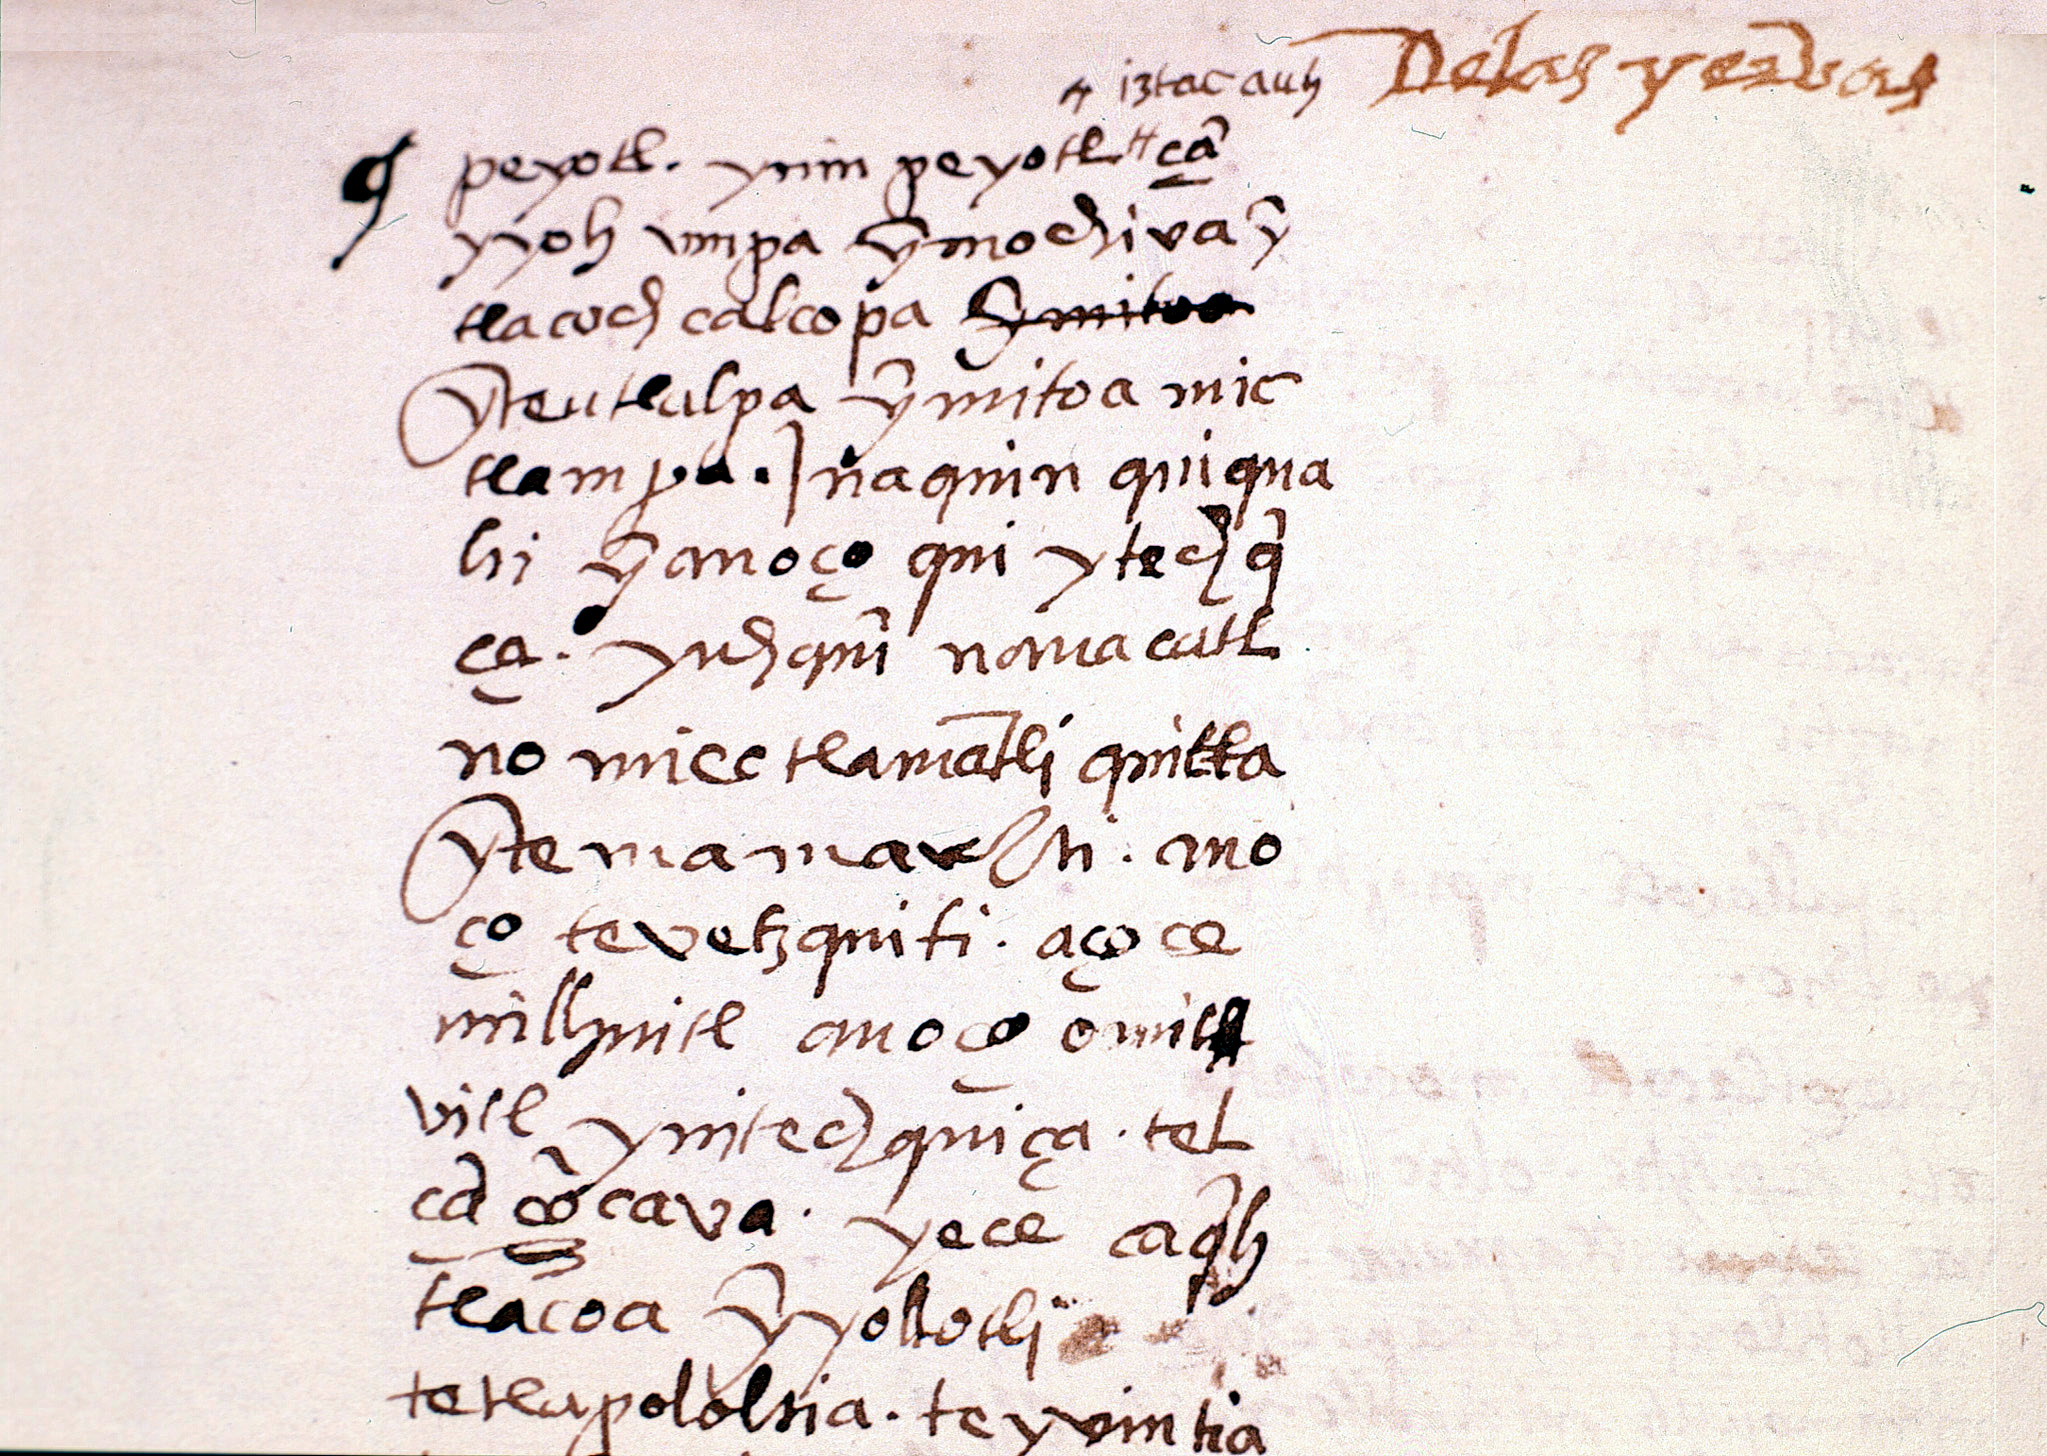 iztac auh
Delas yervas
peyotl. ynin peyotl çã
yyoh vmpa ỹmochiva ỹ
tlacoch calcopa ỹmitoa
ỹteutlalpa ỹmitoa mic
tlampa. ỹaquin quiqua
hi ỹanoço qui ytech q̃
ça. yuhquĩ nonacatl
no miec tlamãtli quitta
ỹtemamauhti. ano
ço tevetzquiti. aço ce
milhuitl anoço omil
vitl ynitech quiça. tel
çã cõcava. yece ca q̃h
tlacoa ỹyollotli
tetlapololtia. teyvintia